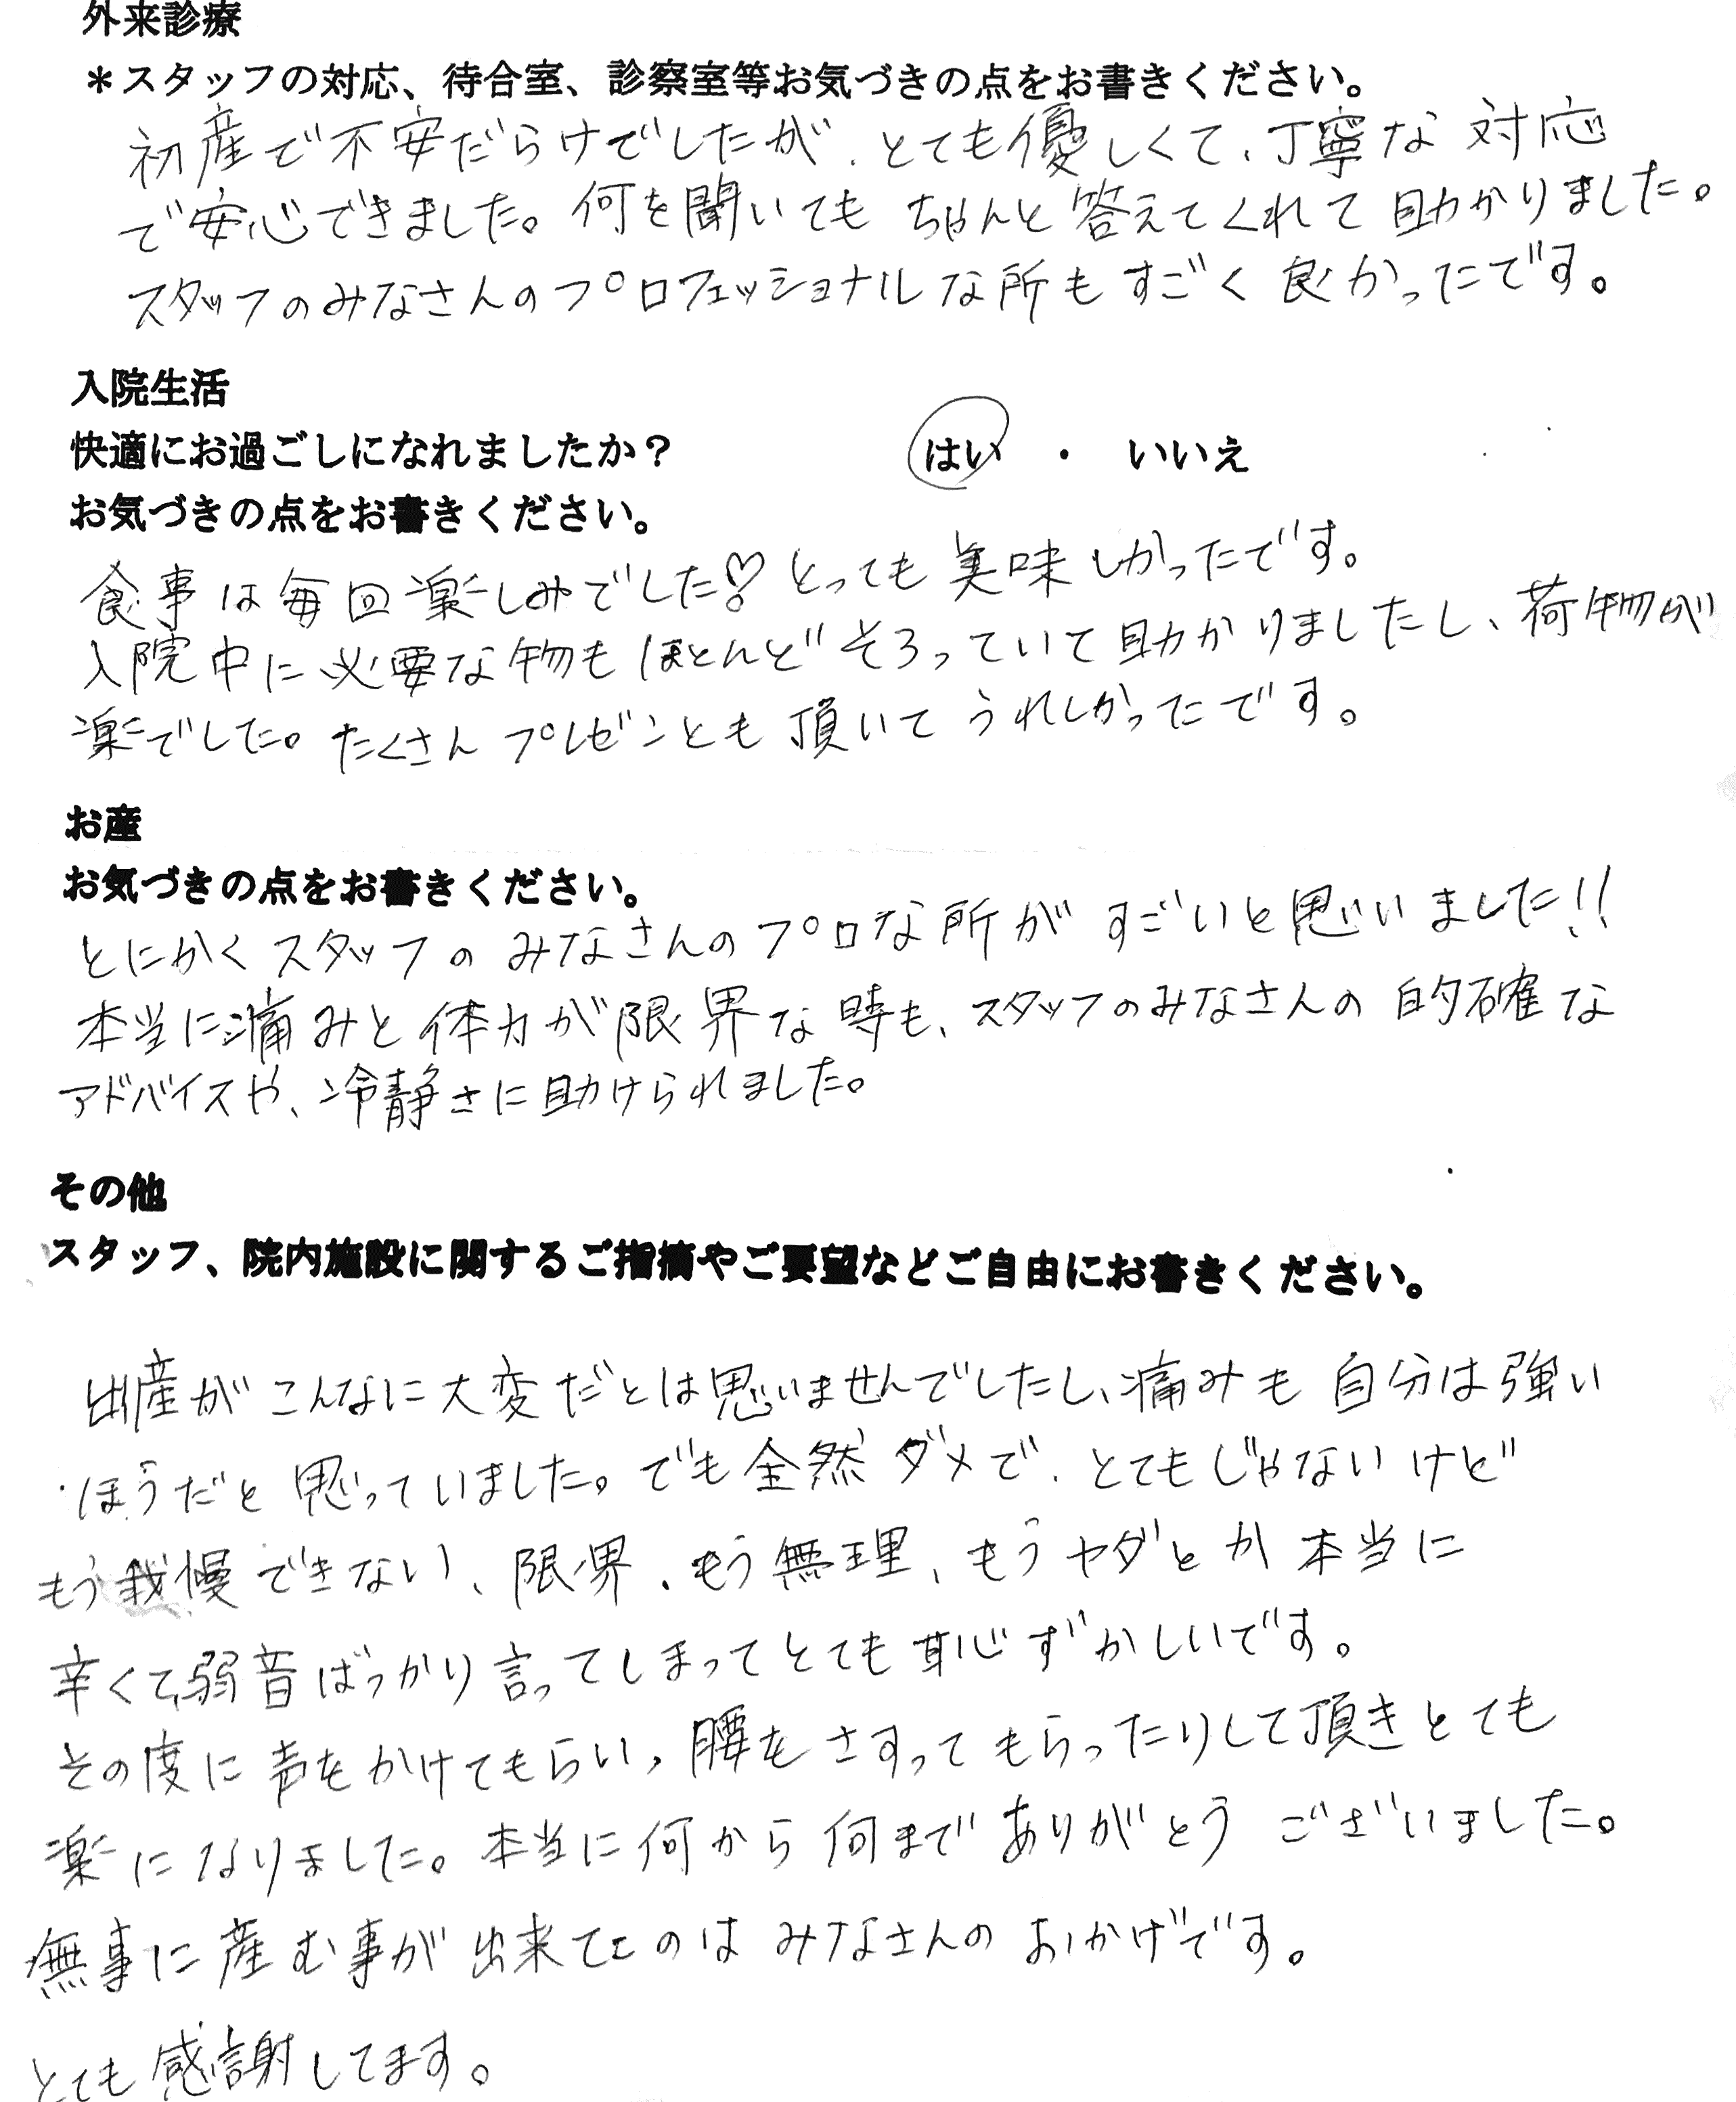 外来診療
＊スタッフの対応、待合室、診察室等お気づきの点をお書きください。
初産で不安だらけでしたが、とても優しくて、丁寧な対応
で安心できました。何を聞いてもちゃんと答えてくれて助かりました。
スタッフのみなさんのプロフェッショナルな所もすごく良かったです。
入院生活
快適にお過ごしになれましたか？ はい ・ いいえ
お気づきの点をお書きください。
食事は毎回楽しみでした♡とっても美味しかったです。
入院中に必要な物もほとんどそろっていて助かりましたし、荷物が
楽でした。たくさんプレゼントも頂いてうれしかったです。
お産
お気づきの点をお書きください。
とにかくスタッフのみなさんのプロな所がすごいと思いました!!
本当に痛みと体力が限界な時も、スタッフのみなさんの的確な
アドバイスや、冷静さに助けられました。
その他
スタッフ、院内施設に関するご指摘やご要望などご自由にお書きください。
出産がこんなに大変だとは思いませんでしたし、痛みも自分は強い
ほうだと思っていました。でも全然ダメで、とてもじゃないけど
もう我慢できない、限界、もう無理、もうヤダとか本当に
辛くて、弱音ばっかり言ってしまってとても恥ずかしいです。
その度に声をかけてもらい、腰をさすってもらったりして頂きとても
楽になりました。本当に何から何までありがとうございました。
無事に産む事が出来たのはみなさんのおかげです。
とても感謝してます。